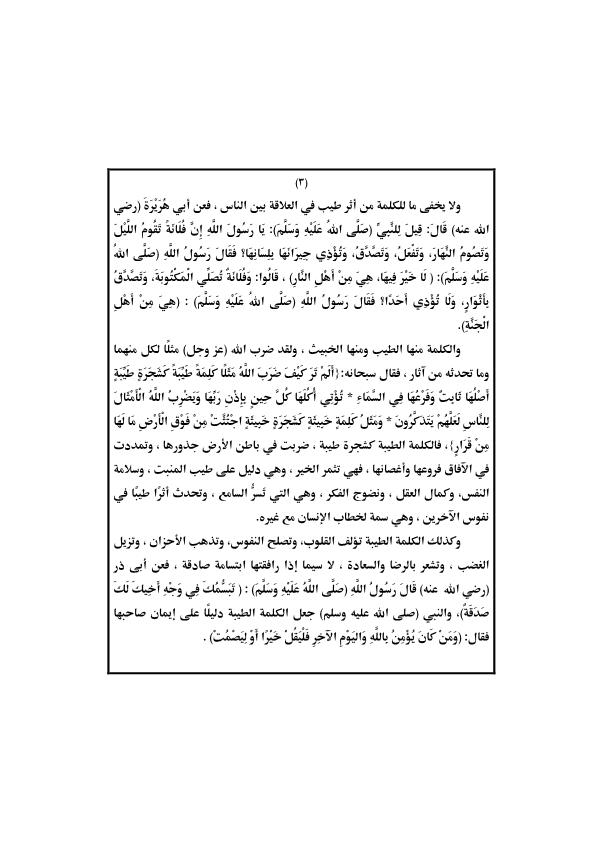 (٣)
ولا يخفى ما للكلمة من أثر طيب في العلاقة بين الناس ، فعن أبي هُرَيْرَةَ (رضي
الله عنه) قَالَ: قِيلَ لِلنَّبِيِّ (صَلَّى اللهُ عَلَيْهِ وَسَلَّمَ): يَا رَسُولَ اللَّهِ إِنَّ فُلَانَةً تَقُومُ اللَّيْلَ
وَتَصُومُ النَّهَارَ، وَتَفْعَلُ، وَتَصَّدَّقُ، وَتُؤْذِي جِيرَانَهَا بِلِسَانِهَا؟ فَقَالَ رَسُولُ اللَّهِ (صَلَّى اللهُ
عَلَيْهِ وَسَلَّمَ): ( لَا خَيْرَ فِيهَا، هِيَ مِنْ أَهْلِ النَّارِ) ، قَالُوا: وَفُلَانَةٌ تُصَلِّي الْمَكْتُوبَةَ، وَتَصَّدَّقُ
بِأَثْوَارٍ، وَلَا تُؤْذِي أَحَدًا؟ فَقَالَ رَسُولُ اللَّهِ (صَلَّى اللهُ عَلَيْهِ وَسَلَّمَ) : (هِيَ مِنْ أَهْلِ
الْجَنَّةِ).
والكلمة منها الطيب ومنها الخبيث ، ولقد ضرب الله (عز وجل) مثلًا لكل منهما
وما تحدثه من آثار ، فقال سبحانه:{أَلَمْ تَرَ كَيْفَ ضَرَبَ اللَّهُ مَثَلًا كَلِمَةً طَيِّبَةً كَشَجَرَةٍ طَيِّبَةٍ
أَصْلُهَا ثَابِتٌ وَفَرْعُهَا فِي السَّمَاءِ * تُؤْتِي أُكُلَهَا كُلَّ حِينٍ بِإِذْنِ رَبِّهَا وَيَضْرِبُ اللَّهُ الْأَمْثَالَ
لِلنَّاسِ لَعَلَّهُمْ يَتَذَكَّرُونَ * وَمَثَلُ كَلِمَةٍ خَبِيثَةٍ كَشَجَرَةٍ خَبِيثَةٍ اجْتُثَّتْ مِنْ فَوْقِ الْأَرْضِ مَا لَهَا
مِنْ قَرَارٍ}، فالكلمة الطيبة كشجرة طيبة ، ضربت في باطن الأرض جذورها ، وتمددت
في الآفاق فروعها وأغصانها ، فهي تثمر الخير ، وهي دليل على طيب المنبت ، وسلامة
النفس، وكمال العقل ، ونضوج الفكر ، وهي التي تَسرُّ السامع ، وتحدث أثرًا طيبًا في
نفوس الآخرين ، وهي سمة لخطاب الإنسان مع غيره.
وكذلك الكلمة الطيبة تؤلف القلوب، وتصلح النفوس، وتذهب الأحزان ، وتزيل
الغضب ، وتشعر بالرضا والسعادة ، لا سيما إذا رافقتها ابتسامة صادقة ، فعن أبى ذر
(رضي الله عنه) قَالَ رَسُولُ اللَّهِ (صَلَّى اللَّهُ عَلَيْهِ وَسَلَّمَ) : ( تَبَسُّمُكَ فِي وَجْهِ أَخِيكَ لَكَ
صَدَقَةٌ)، والنبي (صلى الله عليه وسلم) جعل الكلمة الطيبة دليلًا على إيمان صاحبها
فقال: (وَمَنْ كَانَ يُؤْمِنُ بِاللَّهِ وَاليَوْمِ الآخِرِ فَلْيَقُلْ خَيْرًا أَوْ لِيَصْمُتْ) .